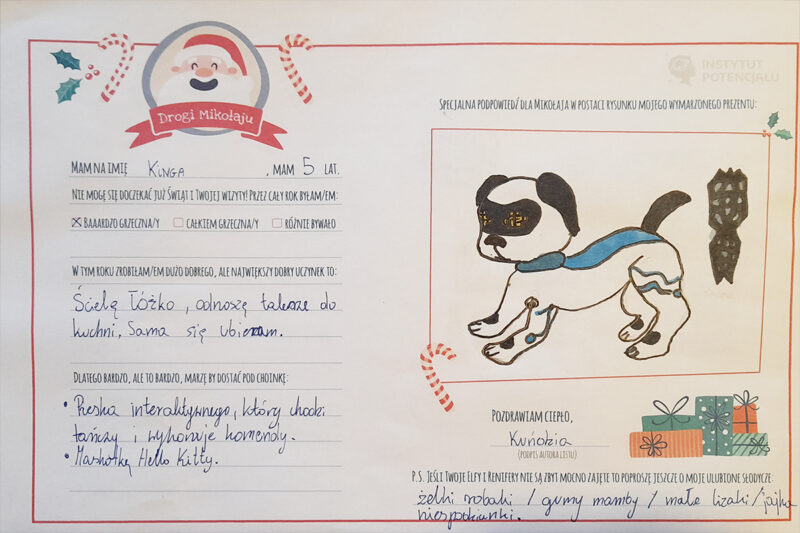 Drogi Mikołaju
MAM NA IMIĘ Kinga, MAM 5 LAT.
NIE MOGĘ SIĘ DOCZEKAĆ JUŻ ŚWIĄT I TWOJEJ WIZYTY! PRZEZ CAŁY ROK BYŁAM/EM:
BAAARDZO GRZECZNA/Y CAŁKIEM GRZECZNA/Y RÓŻNIE BYWAŁO
W TYM ROKU ZROBIŁAM/EM DUŻO DOBREGO, ALE NAJWIĘKSZY DOBRY UCZYNEK TO:
Ścielę łóżko, odnoszę talerze do
kuchni, Sama się ubieram.
DLATEGO BARDZO, ALE TO BARDZO, MARZĘ BY DOSTAĆ POD CHOINKĘ:
• Pieska interaktywnego, który chodzi
tańczy i wykonuje komendy.
• Maskotkę Hello Kitty.
INSTYTUT
POTENCJAŁU
SPECJALNA PODPOWIEDŹ DLA MIKOŁAJA W POSTACI RYSUNKU MOJEGO WYMARZONEGO PREZENTU:
POZDRAWIAM CIEPŁO,
(PODPIS AUTORA LISTU)
P.S. JEŚLI TWOJE ELFY I RENIFERY NIE SĄ ZBYT MOCNO ZAJĘTE TO POPROSZĘ JESZCZE O MOJE ULUBIONE SŁODYCZE:
żelki robaki / gumy mamby / małe lizaki / jajka
niespodzianki.